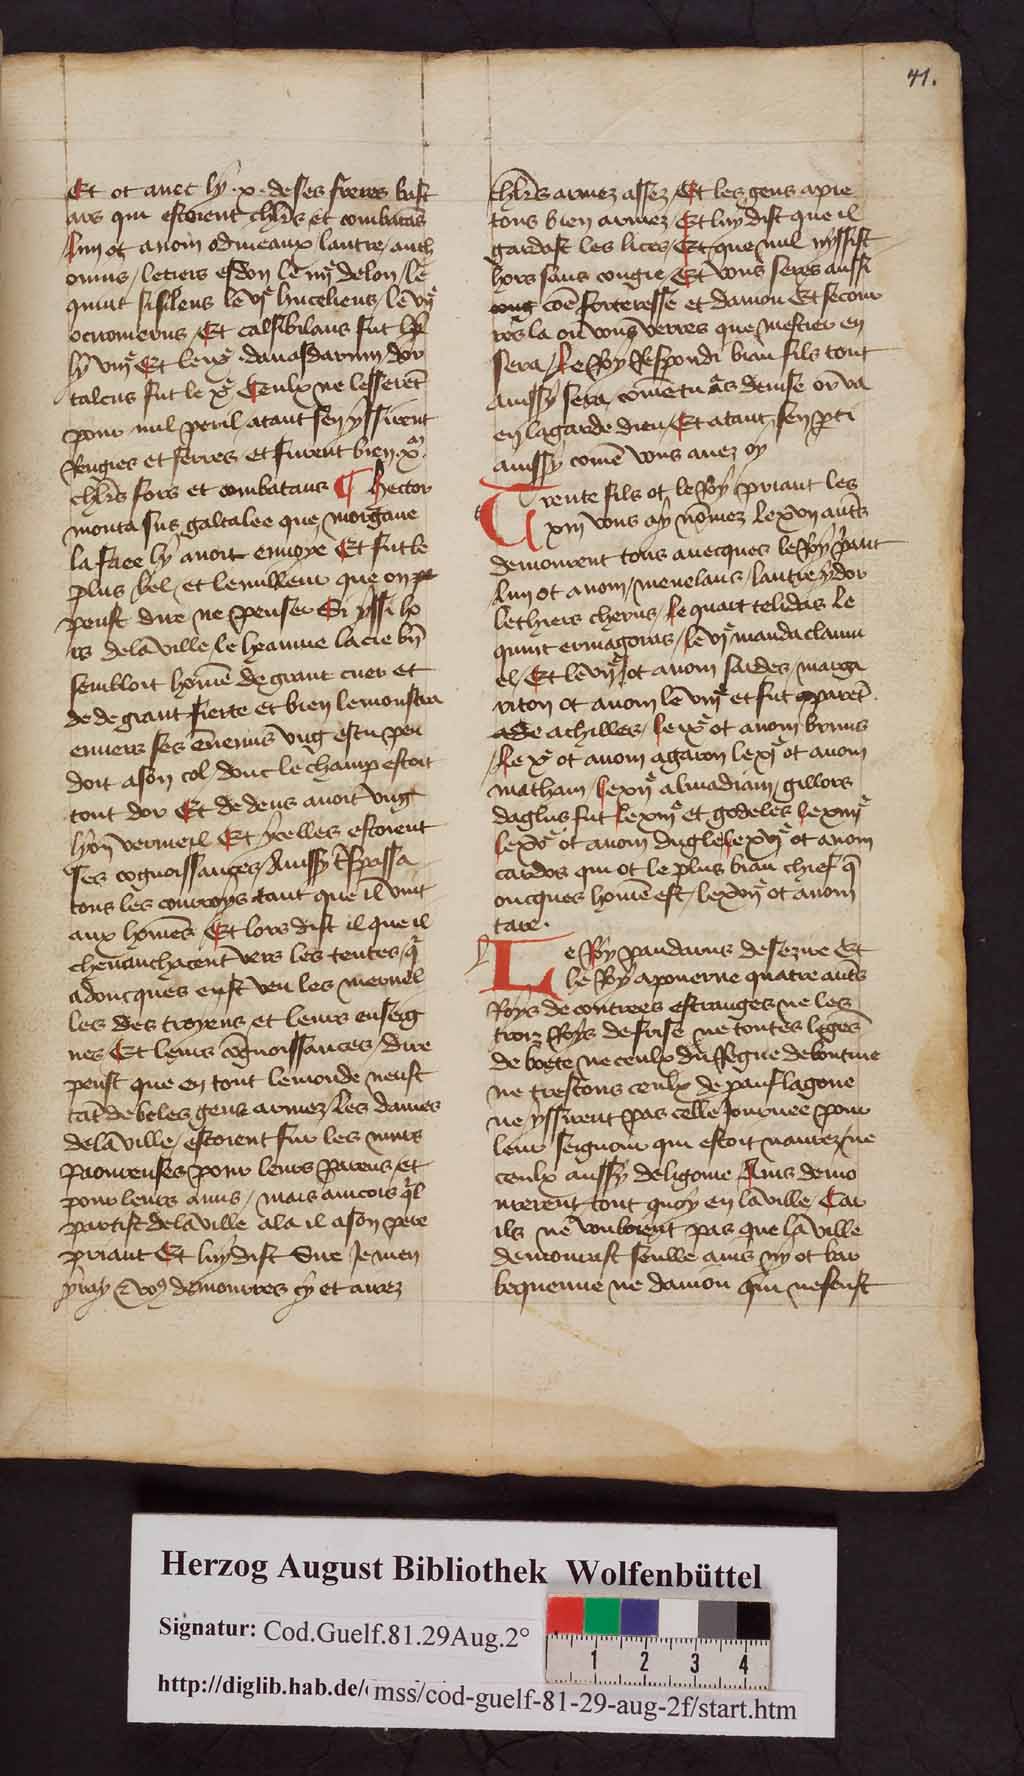 41.
Et ot auec ly .x. de ses freres bast
ars qui estoient chl̃rs et combatãs
lun ot a nom odineaux lautre / anth
onius / letiers esdon le iiijͤ delon / le
quint sisileus le vjͤ huceliens / le vijͤ
ocromerus / Et cassibilans fut
ly viijͤ Et le ixͤ . dauasdarnum dor
calcus fut le xͤ Ceulx ne lesserẽt
pour nul peril / atant sen yssirent
rengies et serres et furent bien .xͫ.
chl̃rs fors et combatans ¶ hector
monta sus galtalee que morgane
la faee ly auoit enuoye Et fut le
plus bel / et le meilleur que on
peust dire ne penser Si yssi ho
rs de la ville / le heaume lacie biẽ
sembloit hom̃e de grant cuer et
de de grant fierte et bien le monstra
enuers ses ẽnemis vng escu pen
doit a son col / donc le champ estoit
tout dor Et de dens auoit vng
lyon vermeil Et ycelles estoient
ses cognoissances / Aussy t̃spassa
tous les conroys tant que il vint
aux hom̃es Et lors dist il que il
cheuauchacent vers les tentes / q̃
adoncques eust veu les meruel
les des troyens et leurs enseig
nes Et leurs cõgnoissances / dire
peust que en tout le monde neust
tãt de beles gens armez / les dames
de la ville / estoient sur les murs
paourenses pour leurs parens / et
pour leurs amis / mais aincois q̃l
partist de la ville ala il a son pere
priant Et luy dist Sire Je men
yray Et voꝰ demourres cy et aurez
chl̃rs armez assez Et les gens a pie
tous bien armez Et luy dist que il
gardast les lices / Et que nul nyssist
hors sans congie Et vous seres aussi
cõe forteresse et damon Et secour
res la ou vous verres que mestier en
sera / Le Roy Respondi biau fils tout
aussy sera cõme tu as deuise or va
en la garde dieu / Et atant sen p̃ti
aussy comẽ vous auez oy
Trente fils ot le Roy priant les
xiij vous ay nõmez le xvij aut̃s
demourent tous auecques le Roy p̃ant
lun ot a nom / menelaus / lautre ysdor
le thiers cherus / le quart telidas le
quint ermagoras / le vjͤ manda clanu
el / Et le vijͤ ot a nom sardes / marga
riton ot a nom le viijͤ et fut aparẽt
de achilles / le ixͤ ot a nom brunis
/ Le xͤ ot a nom agaron le xjͤ ot a nom
matham / Le xijͤ almadiam / gillors
daglus fut le xiijͤ et godeles le xiiijͤ
le xvͤ ot a nom dugle le xvjͤ ot a nom
cardos qui ot le plus biau chief q̃
oncques homẽ est / le xvijͤ ot a nom
tare .
Le Roy pandarus de sezne Et
le Roy aponerne quatre aut̃s
Roys de contrees estranges ne les
troiz Roys de frise ne toutes lgens
de boete ne ceulx du Regne de bontine
ne trestous ceulx de panflagone
ne yssirent pas celle Journee pour
leur seigneur qui estoit naurez / ne
ceulx aussy de ligonie Ains demo
urerent tout quoy en la ville / Car
ils ne voulorent pas que la ville
demourast seulle ains ny ot bar
bequenne ne damon qui ne feust
Herzog August Bibliothek Wolfenbüttel
Signatur: Cod.Guelf.81.29Aug.2°
1 2 3 4
http://diglib.hab.de/ mss/cod-guelf-81-29-aug-2f/start.htm